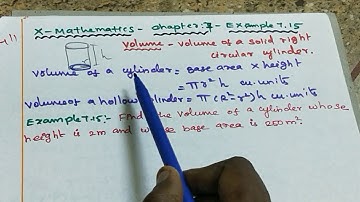 X-Mathematics - chapter:7 - EXample 7.15
Volume - Volume of a solid right
circular cylinder.
h
Volume of a cylinder = Base area x height
= πr²h cu.units
Volume of a hollow cylinder = π(R²-r²)h cu.units
EXample 7.15:- Find the volume of a cylinder whose
height is 2m and whose base area is 250m².